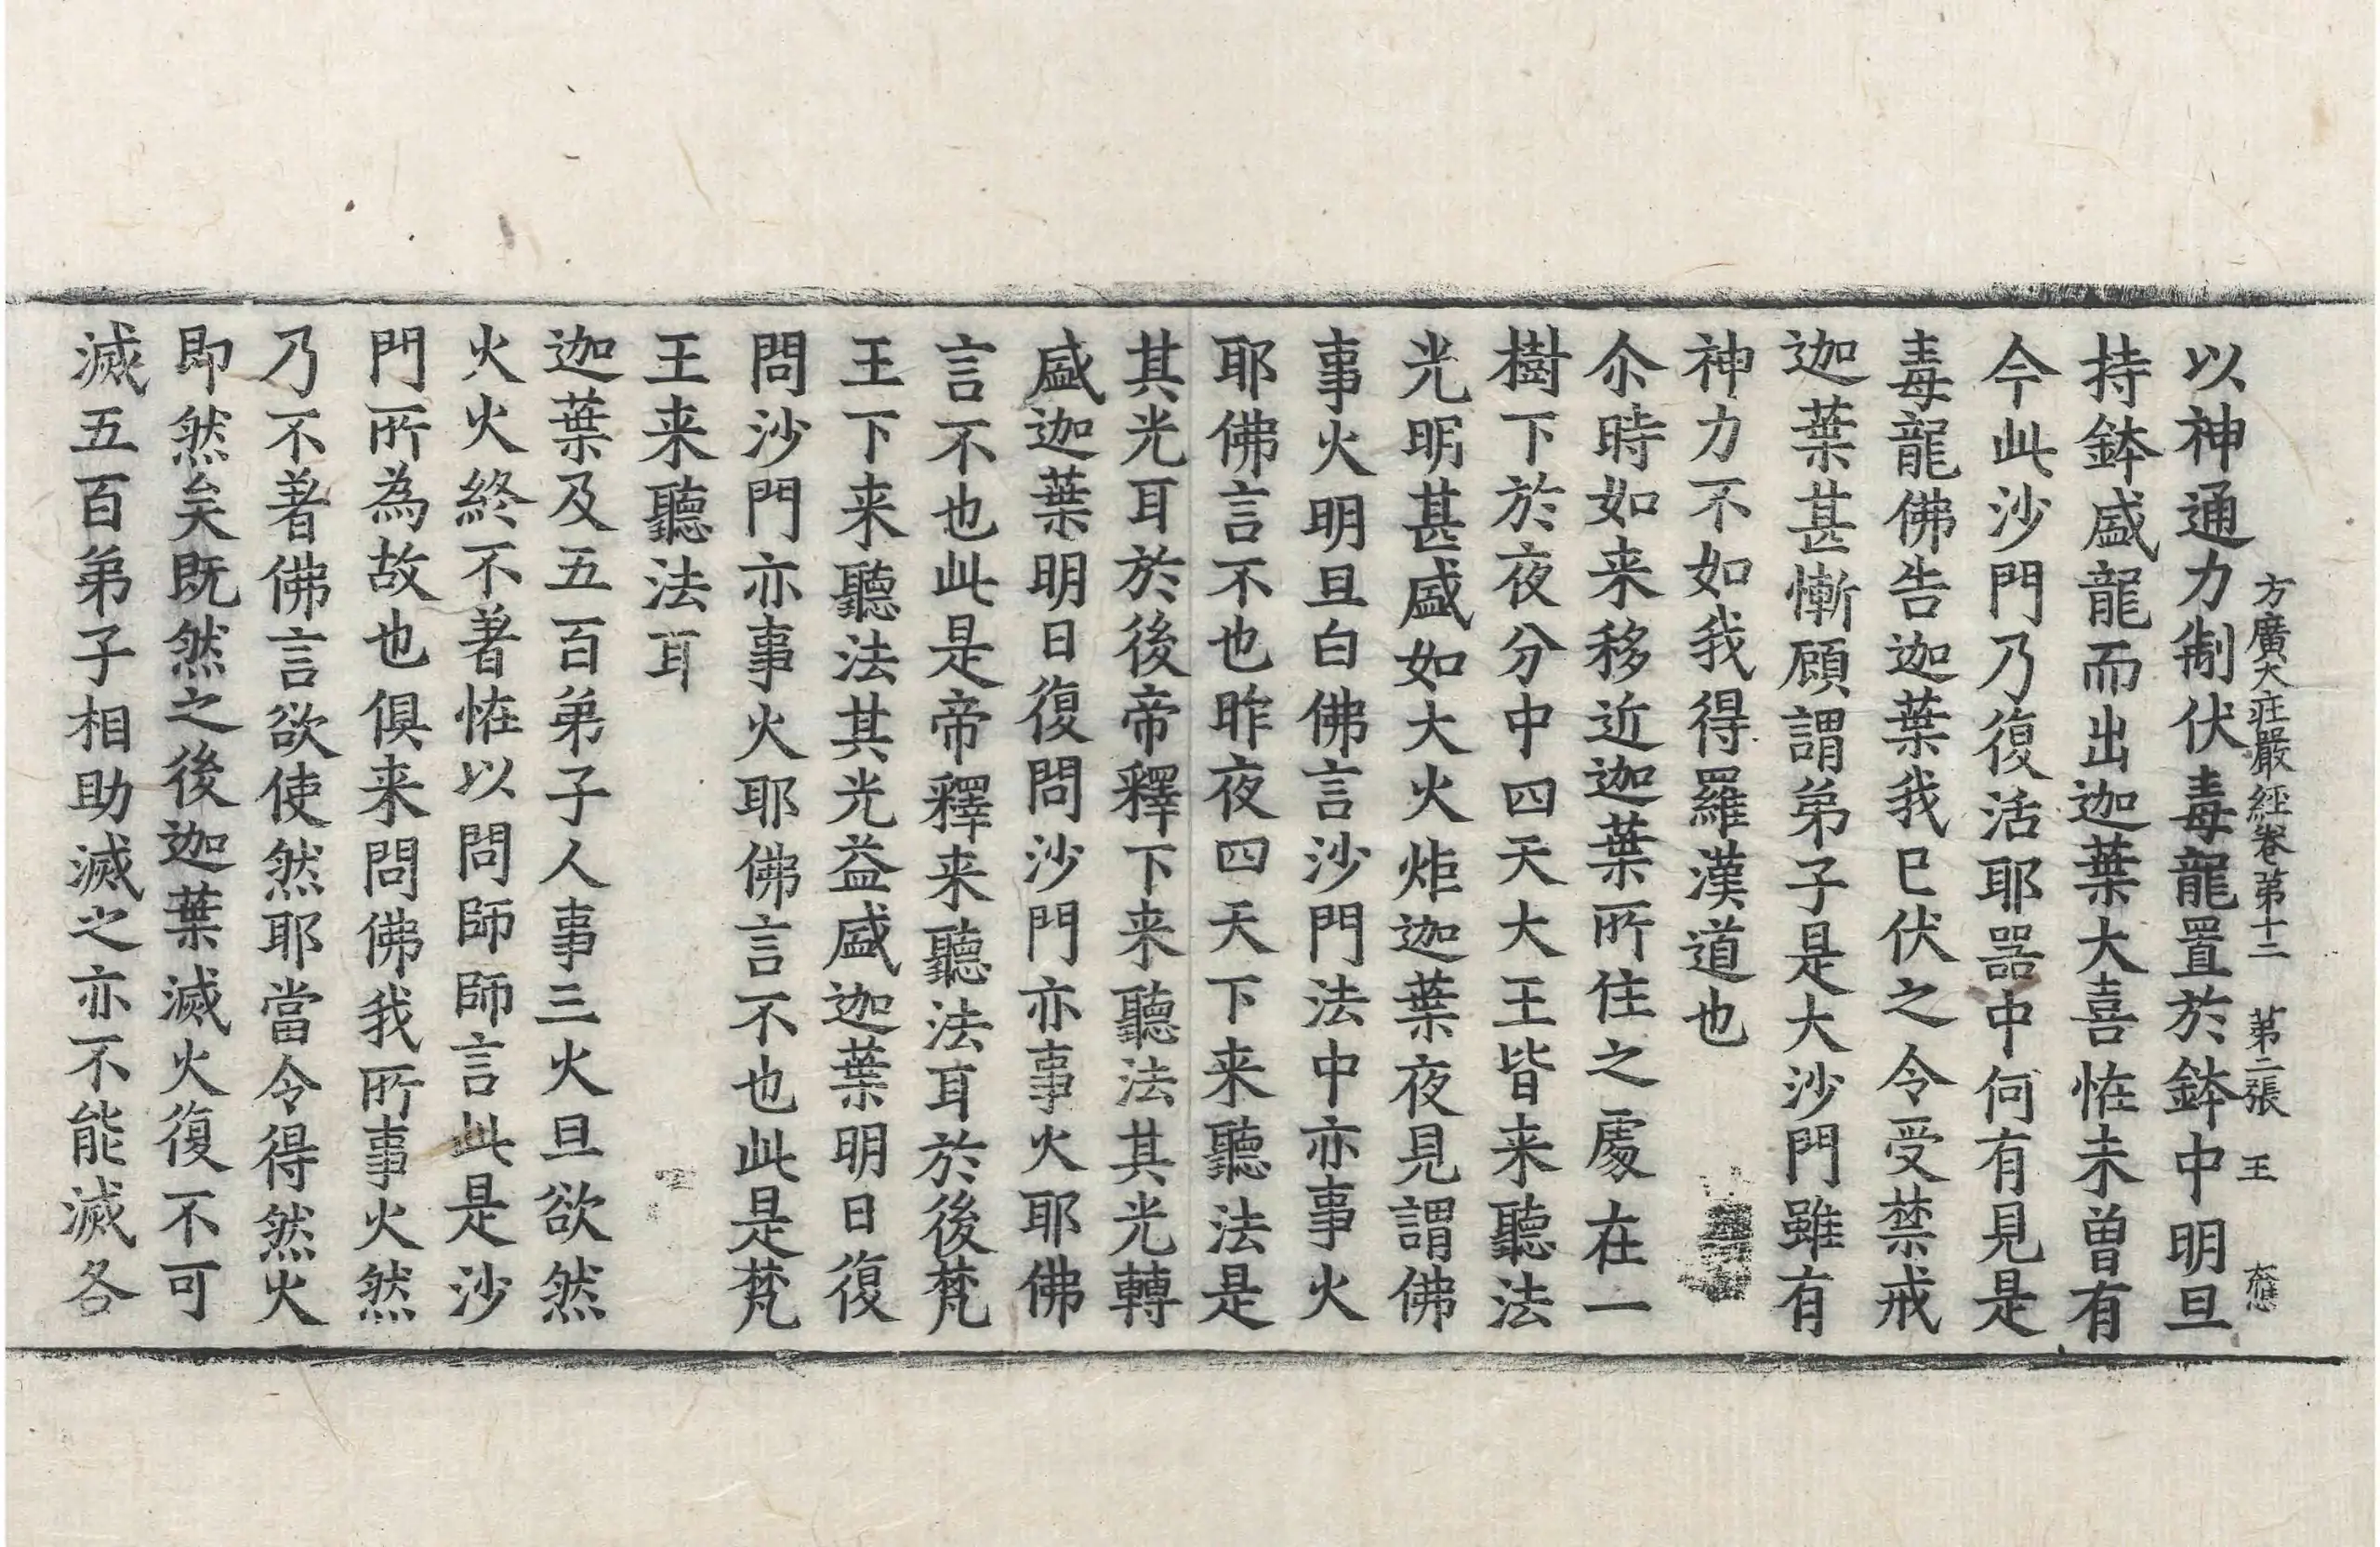 方廣大莊嚴經卷第十二 第二張 王
以神通力制伏毒龍置於鉢中明旦
持鉢盛龍而出迦葉大喜恠未曾有
今此沙門乃復活耶器中何有見是
毒龍佛告迦葉我已伏之令受禁戒
迦葉甚慚顧謂弟子是大沙門雖有
神力不如我得羅漢道也
尒時如来移近迦葉所住之處在一
樹下於夜分中四天大王皆来聽法
光明甚盛如大火炬迦葉夜見謂佛
事火明旦白佛言沙門法中亦事火
耶佛言不也昨夜四天下来聽法是
其光耳於後帝釋下来聽法其光轉
盛迦葉明日復問沙門亦事火耶佛
言不也此是帝釋来聽法耳於後梵
王下来聽法其光益盛迦葉明日復
問沙門亦事火耶佛言不也此是梵
王来聽法耳
迦葉及五百弟子人事三火旦欲然
火火終不著恠以問師師言此是沙
門所為故也俱来問佛我所事火然
乃不著佛言欲使然耶當令得然火
即然矣既然之後迦葉滅火復不可
滅五百弟子相助滅之亦不能滅各